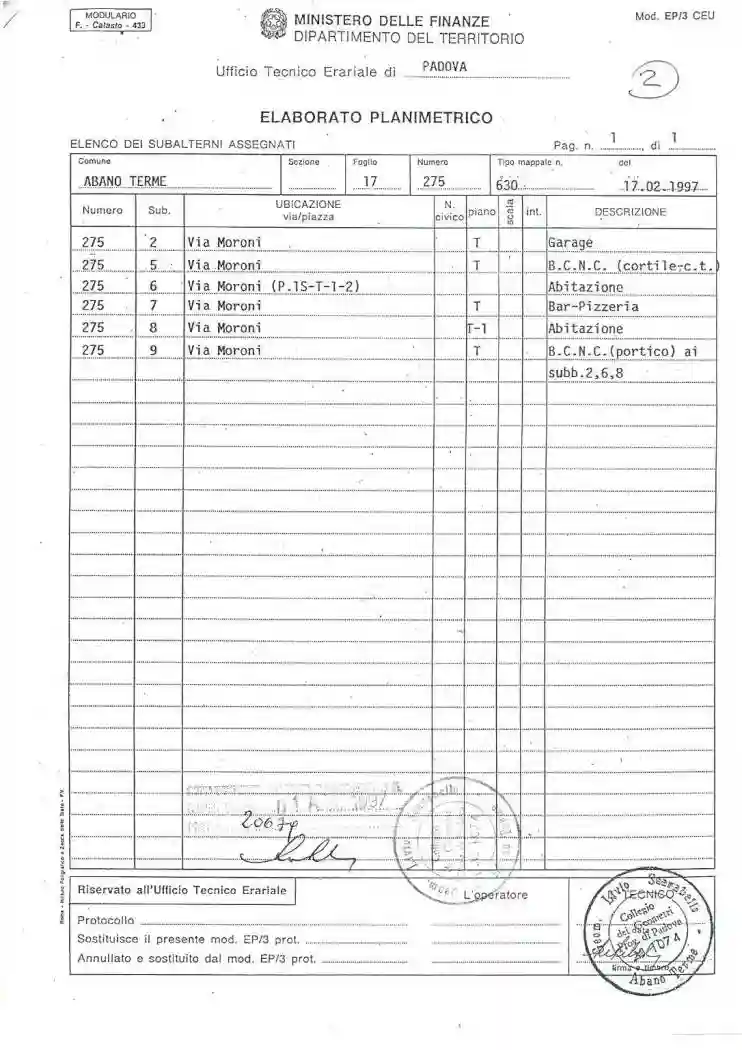 MODULARIO
F. - Catasto - 433
MINISTERO DELLE FINANZE
DIPARTIMENTO DEL TERRITORIO
Mod. EP/3 CEU
Ufficio Tecnico Erariale di PADOVA
2
ELABORATO PLANIMETRICO
ELENCO DEI SUBALTERNI ASSEGNATI
Pag. n. 1 di 1
Comune Sezione Foglio Numero Tipo mappale n. del
ABANO TERME 17 275 630 17.02.1997
Numero Sub. UBICAZIONE via/piazza N. civico piano scala int. DESCRIZIONE
275 2 Via Moroni T Garage
275 5 Via Moroni T B.C.N.C. (cortile-c.t.)
275 6 Via Moroni (P.1S-T-1-2) Abitazione
275 7 Via Moroni T Bar-Pizzeria
275 8 Via Moroni T-1 Abitazione
275 9 Via Moroni T B.C.N.C.(portico) ai
subb.2,6,8
Riservato all'Ufficio Tecnico Erariale
L'operatore
Protocollo
Sostituisce il presente mod. EP/3 prot.
Annullato e sostituito dal mod. EP/3 prot.
TECNICO
Geom. Livio Scarabello
Collegio
dei Geometri
Prov. di Padova
N° 1074
firma e timbro
Abano Terme